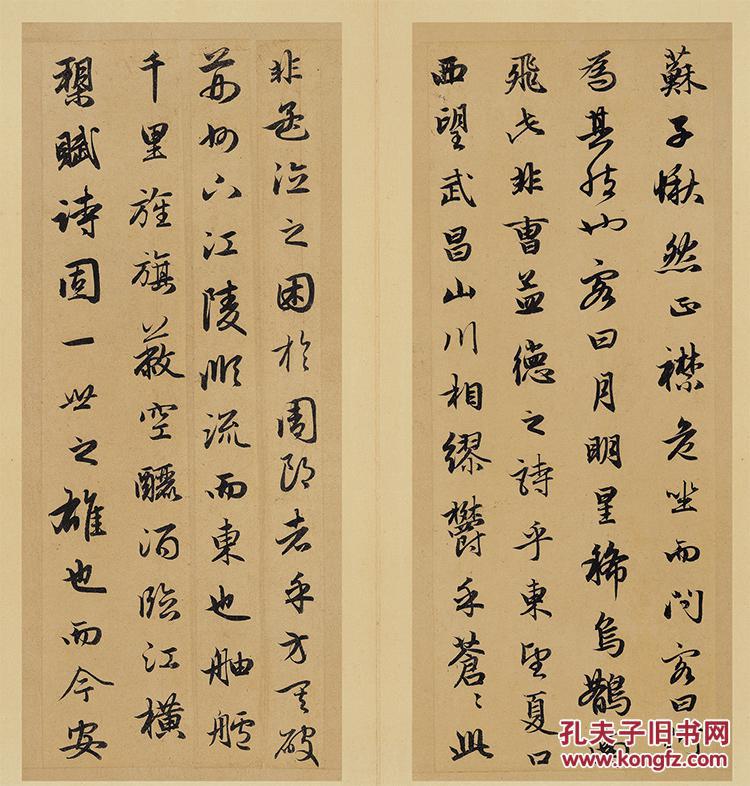 蘇子愀然正襟危坐而問客曰何
為其然也客曰月明星稀烏鵲南
飛此非曹孟德之詩乎東望夏口
西望武昌山川相繆鬱乎蒼〻此
非孟德之困於周郎者乎方其破
荊州下江陵順流而東也舳艫
千里旌旗蔽空釃酒臨江橫
槊賦詩固一世之雄也而今安
孔夫子旧书网
www.kongfz.com